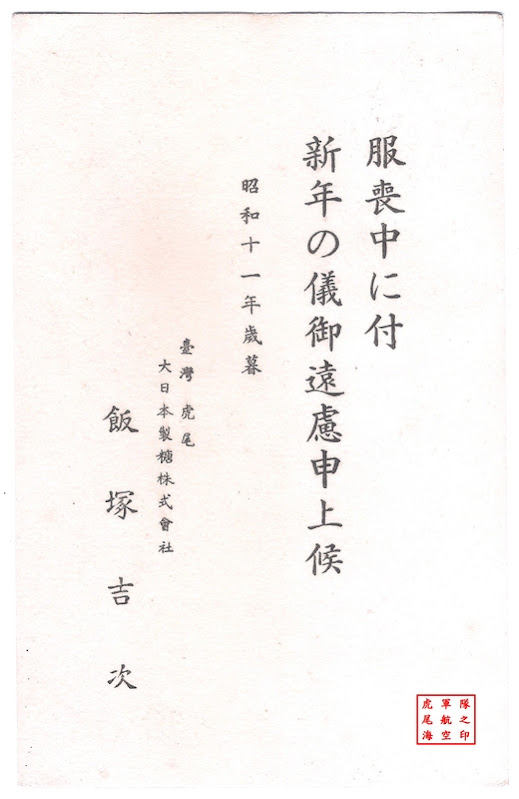 服喪中に付
新年の儀御遠慮申上候
昭和十一年歲暮
臺灣 虎尾
大日本製糖株式會社
飯塚吉次
虎尾海
軍航空
隊之印